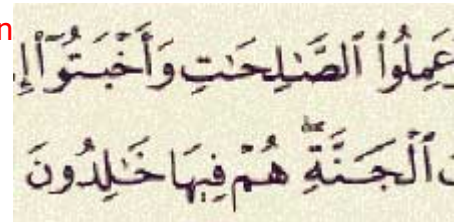 n
وَعَمِلُوا۟ ٱلصَّـٰلِحَـٰتِ وَأَخْبَتُوٓا۟
ٱلْجَنَّةِ ۖ هُمْ فِيهَا خَـٰلِدُونَ